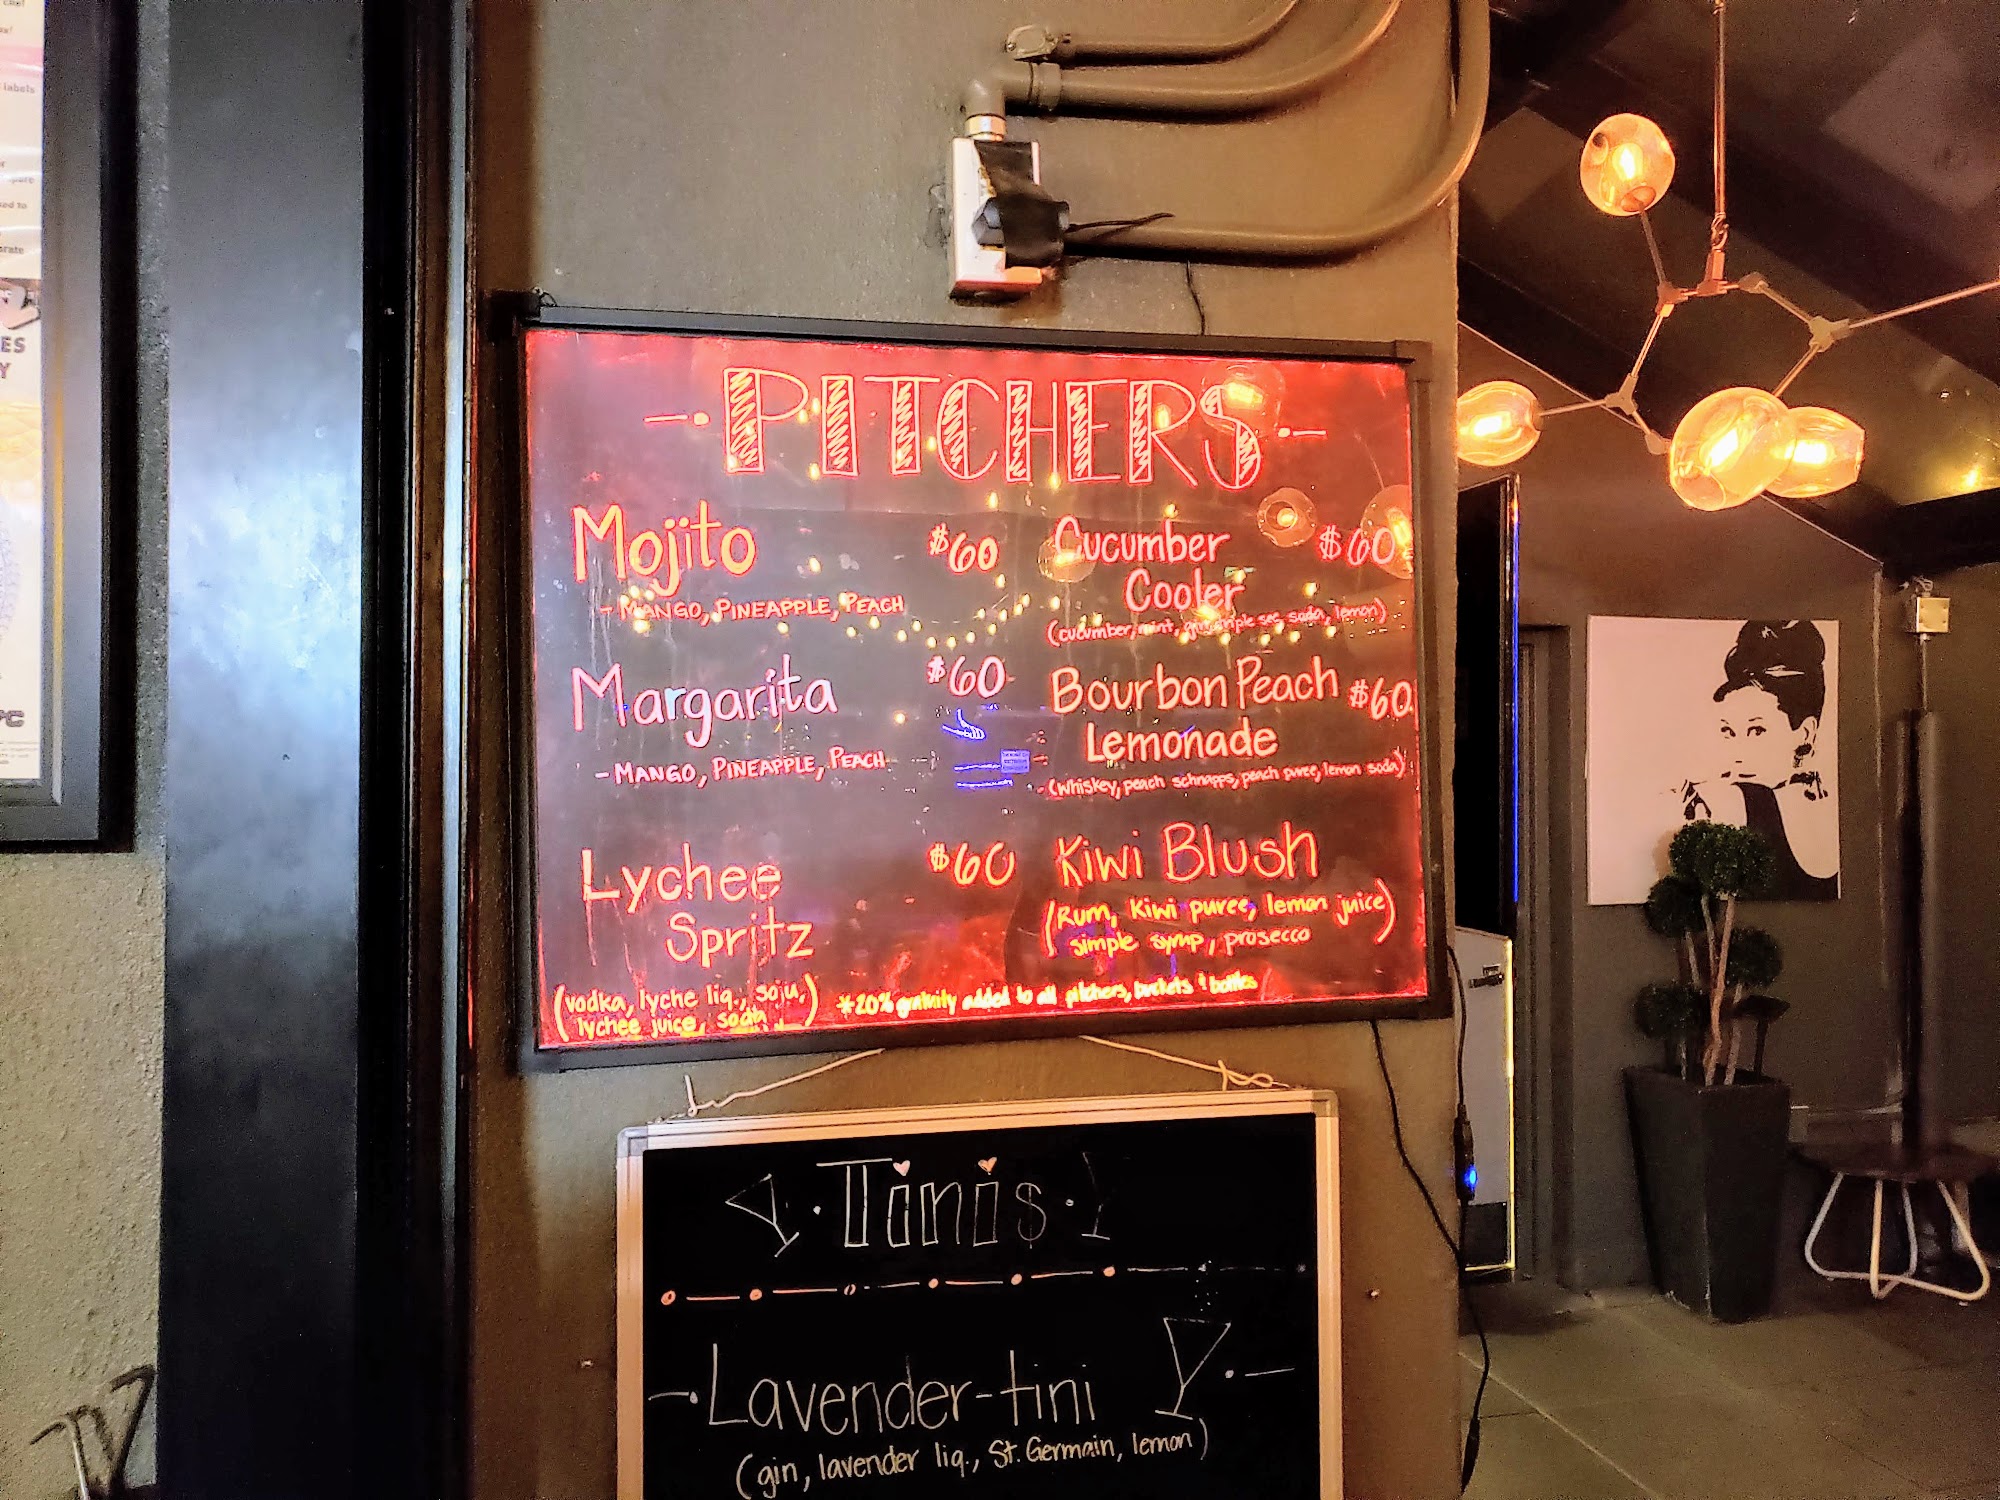 PITCHERS
Mojito $60
- MANGO, PINEAPPLE, PEACH
Margarita $60
- MANGO, PINEAPPLE, PEACH
Lychee $60
Spritz
(vodka, lyche liq., soju,
lychee juice, soda)
Cucumber $60
Cooler
(cucumber, mint, gin, simple sec, soda, lemon)
Bourbon Peach $60
Lemonade
(whiskey, peach schnapps, peach puree, lemon soda)
Kiwi Blush
(Rum, kiwi puree, lemon juice)
simple syrup, prosecco
*20% gratuity added to all pitchers, buckets & bottles
Tini$
Lavender-tini
(gin, lavender liq., St. Germain, lemon)
labels
ES
Y